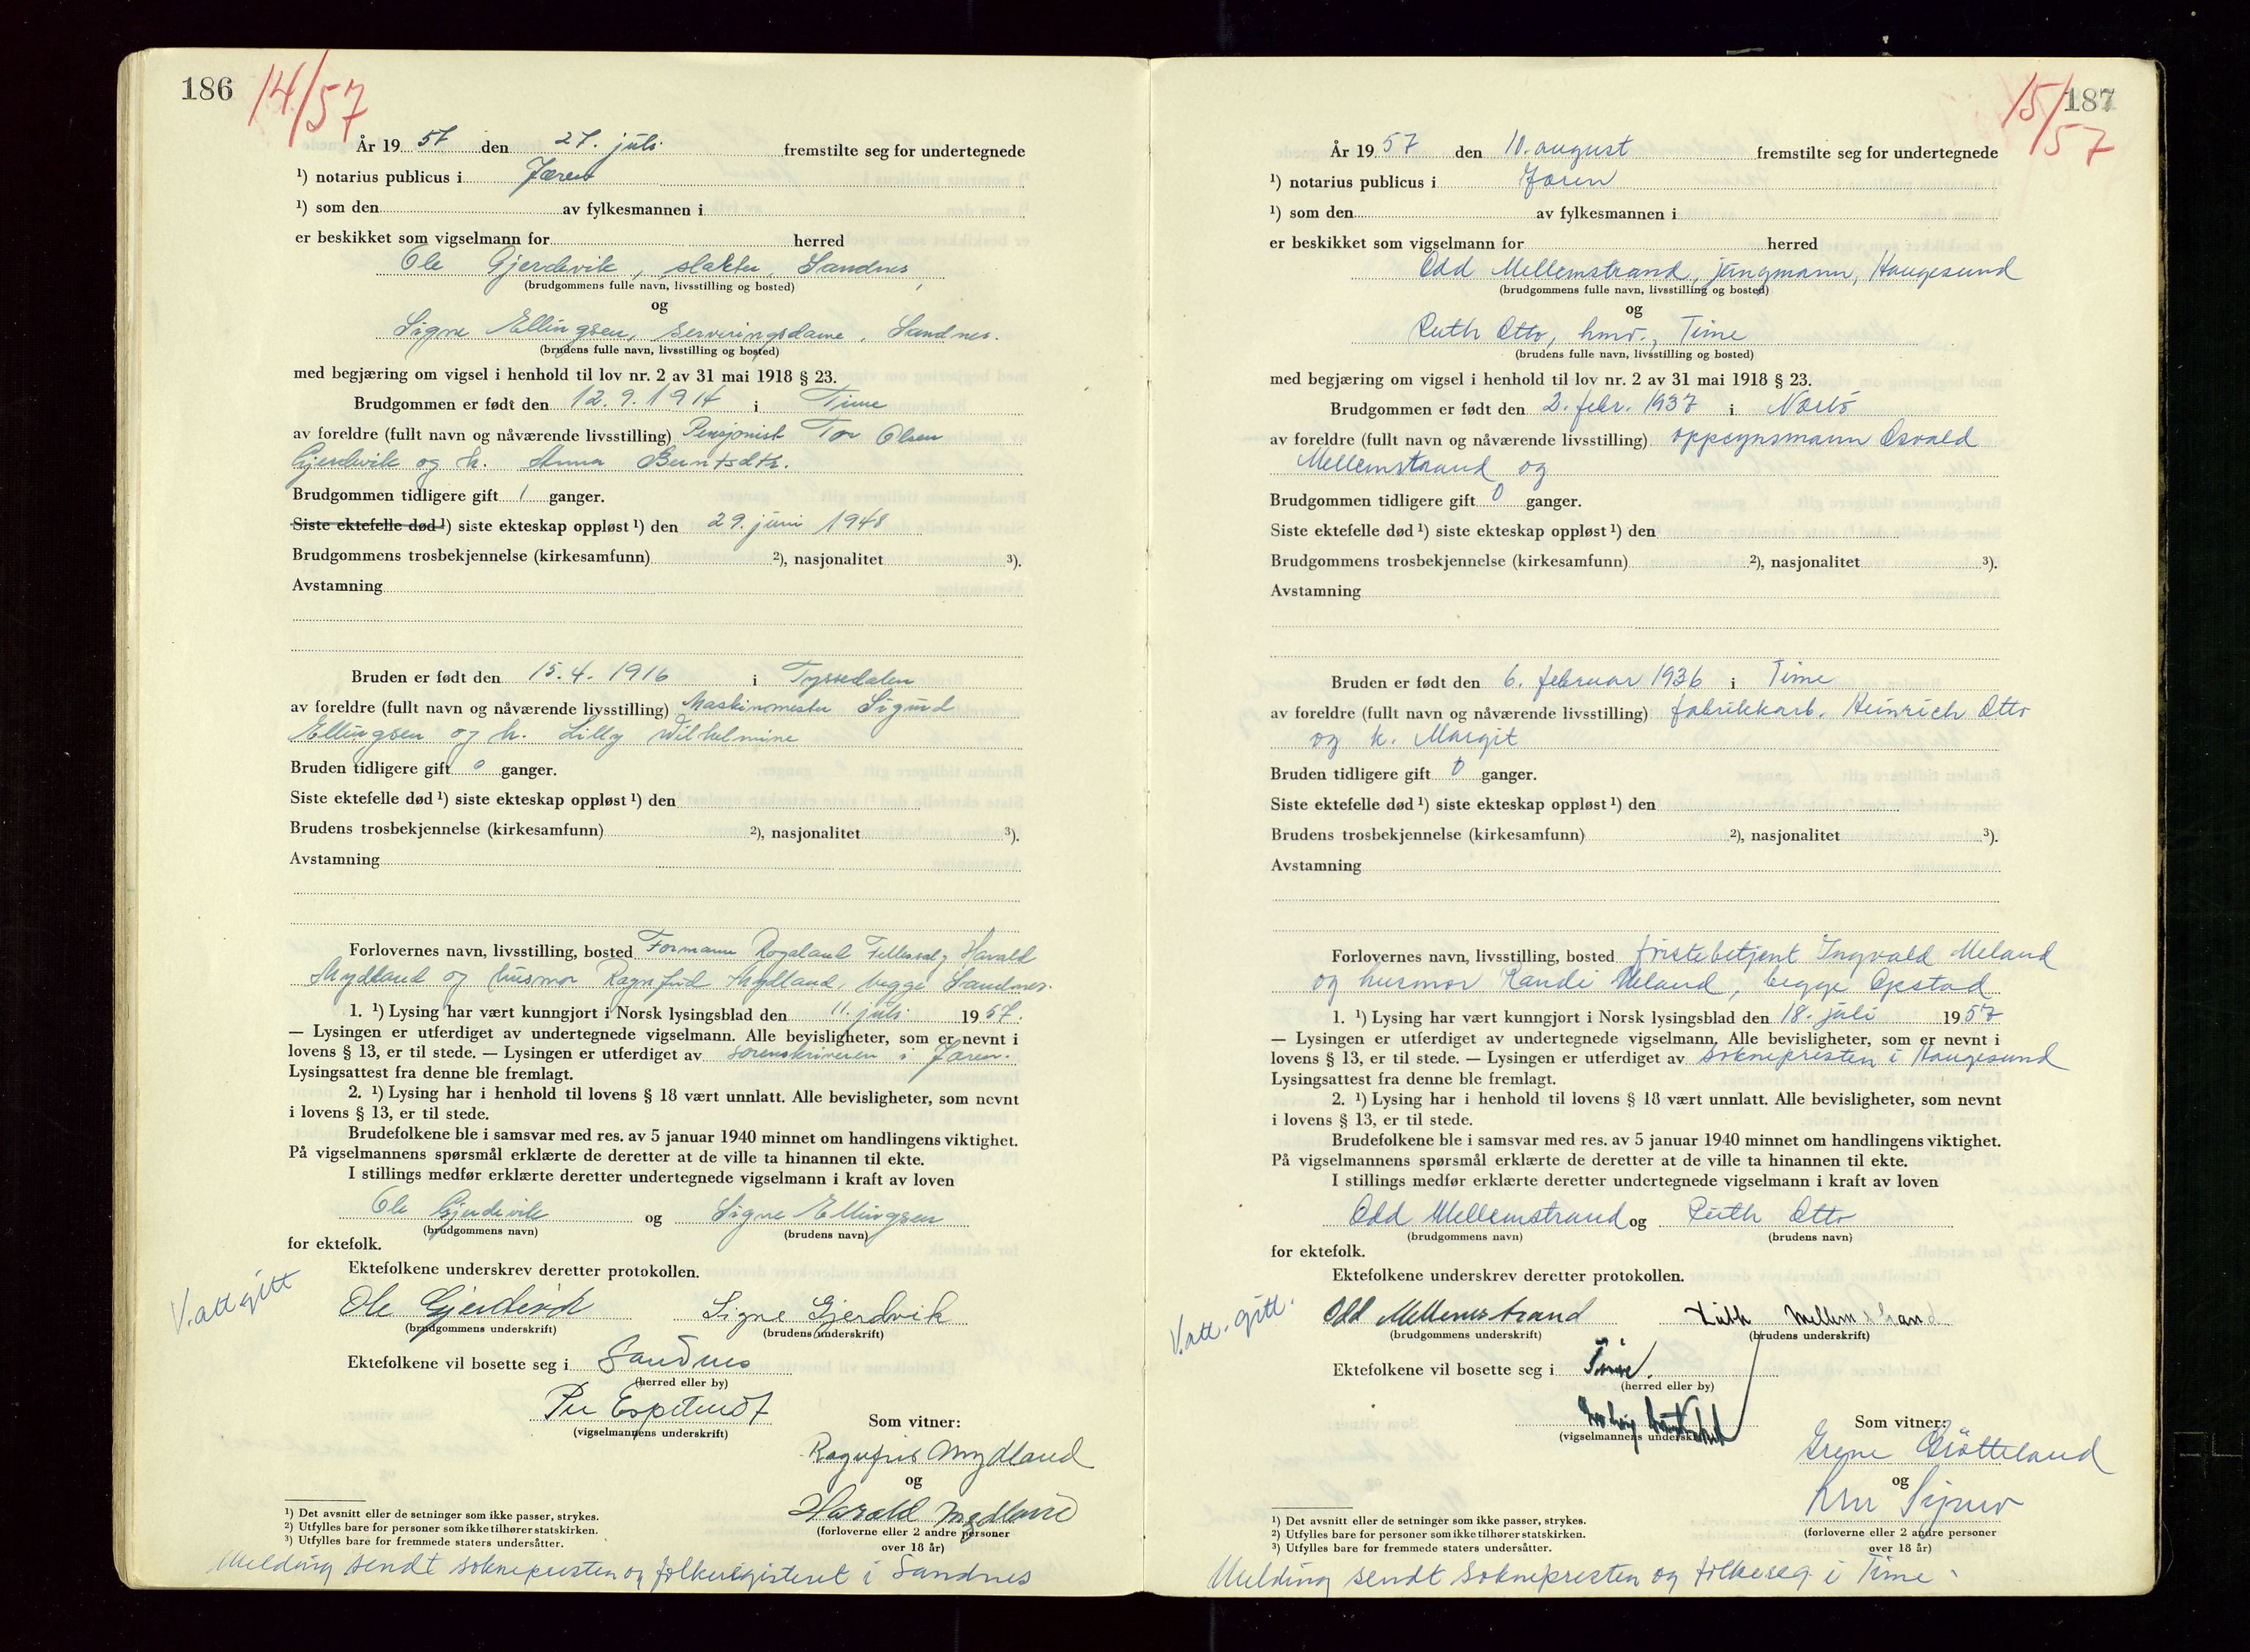 186 14/57
År 19 57 den 27. juli fremstilte seg for undertegnede
¹) notarius publicus i Jæren
¹) som den av fylkesmannen i
er beskikket som vigselmann for herred
Ole Gjerdevik, slakter, Sandnes,
(brudgommens fulle navn, livsstilling og bosted)
og
Signe Ellingsen, serveringsdame, Sandnes.
(brudens fulle navn, livsstilling og bosted)
med begjæring om vigsel i henhold til lov nr. 2 av 31 mai 1918 § 23.
Brudgommen er født den 12.9.1914 i Time
av foreldre (fullt navn og nåværende livsstilling) Pensjonist Tor Olsen
Gjerdevik og h. Anna Berntsdtr.
Brudgommen tidligere gift 1 ganger.
Siste ektefelle død ¹) siste ekteskap oppløst ¹) den 29. juni 1948
Brudgommens trosbekjennelse (kirkesamfunn) ²), nasjonalitet ³).
Avstamning
Bruden er født den 15.4.1916 i Tyssedalen
av foreldre (fullt navn og nåværende livsstilling) Maskinmester Sigurd
Ellingsen og h. Lilly Wilhelmine
Bruden tidligere gift 0 ganger.
Siste ektefelle død ¹) siste ekteskap oppløst ¹) den
Brudens trosbekjennelse (kirkesamfunn) ²), nasjonalitet ³).
Avstamning
Forlovernes navn, livsstilling, bosted Formann Rogaland Fellessalg Harald
Mydland og husmor Ragnfrid Mydland, begge Sandnes.
1. ¹) Lysing har vært kunngjort i Norsk lysingsblad den 11. juli 19 57.
— Lysingen er utferdiget av undertegnede vigselmann. Alle bevisligheter, som er nevnt i
lovens § 13, er til stede. — Lysingen er utferdiget av sorenskriveren i Jæren.
Lysingsattest fra denne ble fremlagt.
2. ¹) Lysing har i henhold til lovens § 18 vært unnlatt. Alle bevisligheter, som nevnt
i lovens § 13, er til stede.
Brudefolkene ble i samsvar med res. av 5 januar 1940 minnet om handlingens viktighet.
På vigselmannens spørsmål erklærte de deretter at de ville ta hinannen til ekte.
I stillings medfør erklærte deretter undertegnede vigselmann i kraft av loven
Ole Gjerdevik og Signe Ellingsen
(brudgommens navn) (brudens navn)
for ektefolk.
Ektefolkene underskrev deretter protokollen.
V.att gitt
Ole Gjerdevik Signe Gjerdvik
(brudgommens underskrift) (brudens underskrift)
Ektefolkene vil bosette seg i Sandnes
(herred eller by)
Per
(vigselmannens underskrift)
Som vitner:
Ragnfrid Mydland
og
Harald Mydland
(forloverne eller 2 andre personer
over 18 år)
¹) Det avsnitt eller de setninger som ikke passer, strykes.
²) Utfylles bare for personer som ikke tilhører statskirken.
³) Utfylles bare for fremmede staters undersåtter.
Melding sendt soknepresten og folkeregisteret i Sandnes
15/57 187
År 19 57 den 10. august fremstilte seg for undertegnede
¹) notarius publicus i Jæren
¹) som den av fylkesmannen i
er beskikket som vigselmann for herred
Odd Mellemstrand, jungmann, Haugesund
(brudgommens fulle navn, livsstilling og bosted)
og
Ruth Otto, hmd., Time
(brudens fulle navn, livsstilling og bosted)
med begjæring om vigsel i henhold til lov nr. 2 av 31 mai 1918 § 23.
Brudgommen er født den 2. febr. 1937 i Nærbø
av foreldre (fullt navn og nåværende livsstilling) oppsynsmann Osvald
Mellemstrand og
Brudgommen tidligere gift 0 ganger.
Siste ektefelle død ¹) siste ekteskap oppløst ¹) den
Brudgommens trosbekjennelse (kirkesamfunn) ²), nasjonalitet ³).
Avstamning
Bruden er født den 6. februar 1936 i Time
av foreldre (fullt navn og nåværende livsstilling) fabrikkarb. Heinrich Otto
og h. Margit
Bruden tidligere gift 0 ganger.
Siste ektefelle død ¹) siste ekteskap oppløst ¹) den
Brudens trosbekjennelse (kirkesamfunn) ²), nasjonalitet ³).
Avstamning
Forlovernes navn, livsstilling, bosted fristebetjent Ingvald Meland
og husmor Randi Meland, begge Opstad
1. ¹) Lysing har vært kunngjort i Norsk lysingsblad den 18. juli 19 57
— Lysingen er utferdiget av undertegnede vigselmann. Alle bevisligheter, som er nevnt i
lovens § 13, er til stede. — Lysingen er utferdiget av soknepresten i Haugesund
Lysingsattest fra denne ble fremlagt.
2. ¹) Lysing har i henhold til lovens § 18 vært unnlatt. Alle bevisligheter, som nevnt
i lovens § 13, er til stede.
Brudefolkene ble i samsvar med res. av 5 januar 1940 minnet om handlingens viktighet.
På vigselmannens spørsmål erklærte de deretter at de ville ta hinannen til ekte.
I stillings medfør erklærte deretter undertegnede vigselmann i kraft av loven
Odd Mellemstrand og Ruth Otto
(brudgommens navn) (brudens navn)
for ektefolk.
Ektefolkene underskrev deretter protokollen.
V.att. gitt.
Odd Mellemstrand Ruth Mellemstrand
(brudgommens underskrift) (brudens underskrift)
Ektefolkene vil bosette seg i Time.
(herred eller by)
(vigselmannens underskrift)
Som vitner:
Grotteland
og
(forloverne eller 2 andre personer
over 18 år)
¹) Det avsnitt eller de setninger som ikke passer, strykes.
²) Utfylles bare for personer som ikke tilhører statskirken.
³) Utfylles bare for fremmede staters undersåtter.
Melding sendt soknepresten og folkereg. i Time.